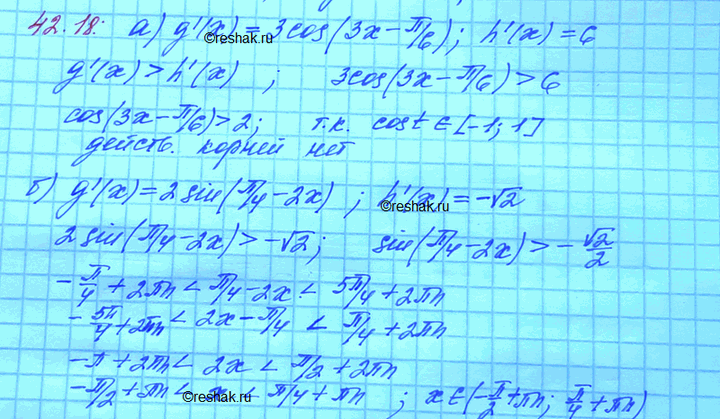 42.18: а) g'(x) = 3cos(3x − π/6); h'(x) = 6
©reshak.ru
g'(x) > h'(x) ; 3cos(3x − π/6) > 6
cos(3x − π/6) > 2; т.к. cost ∈ [−1; 1]
действ. корней нет
б) g'(x) = 2sin(π/4 − 2x) ; h'(x) = −√2
©reshak.ru
2sin(π/4 − 2x) > −√2; sin(π/4 − 2x) > −√2/2
−π/4 + 2πn < π/4 − 2x < 5π/4 + 2πn
−5π/4 + 2πn < 2x − π/4 < π/4 + 2πn
−π + 2πn < 2x < π/2 + 2πn
−π/2 + πn < x < π/4 + πn ; x ∈ (−π/2 + πn; π/4 + πn)
©reshak.ru